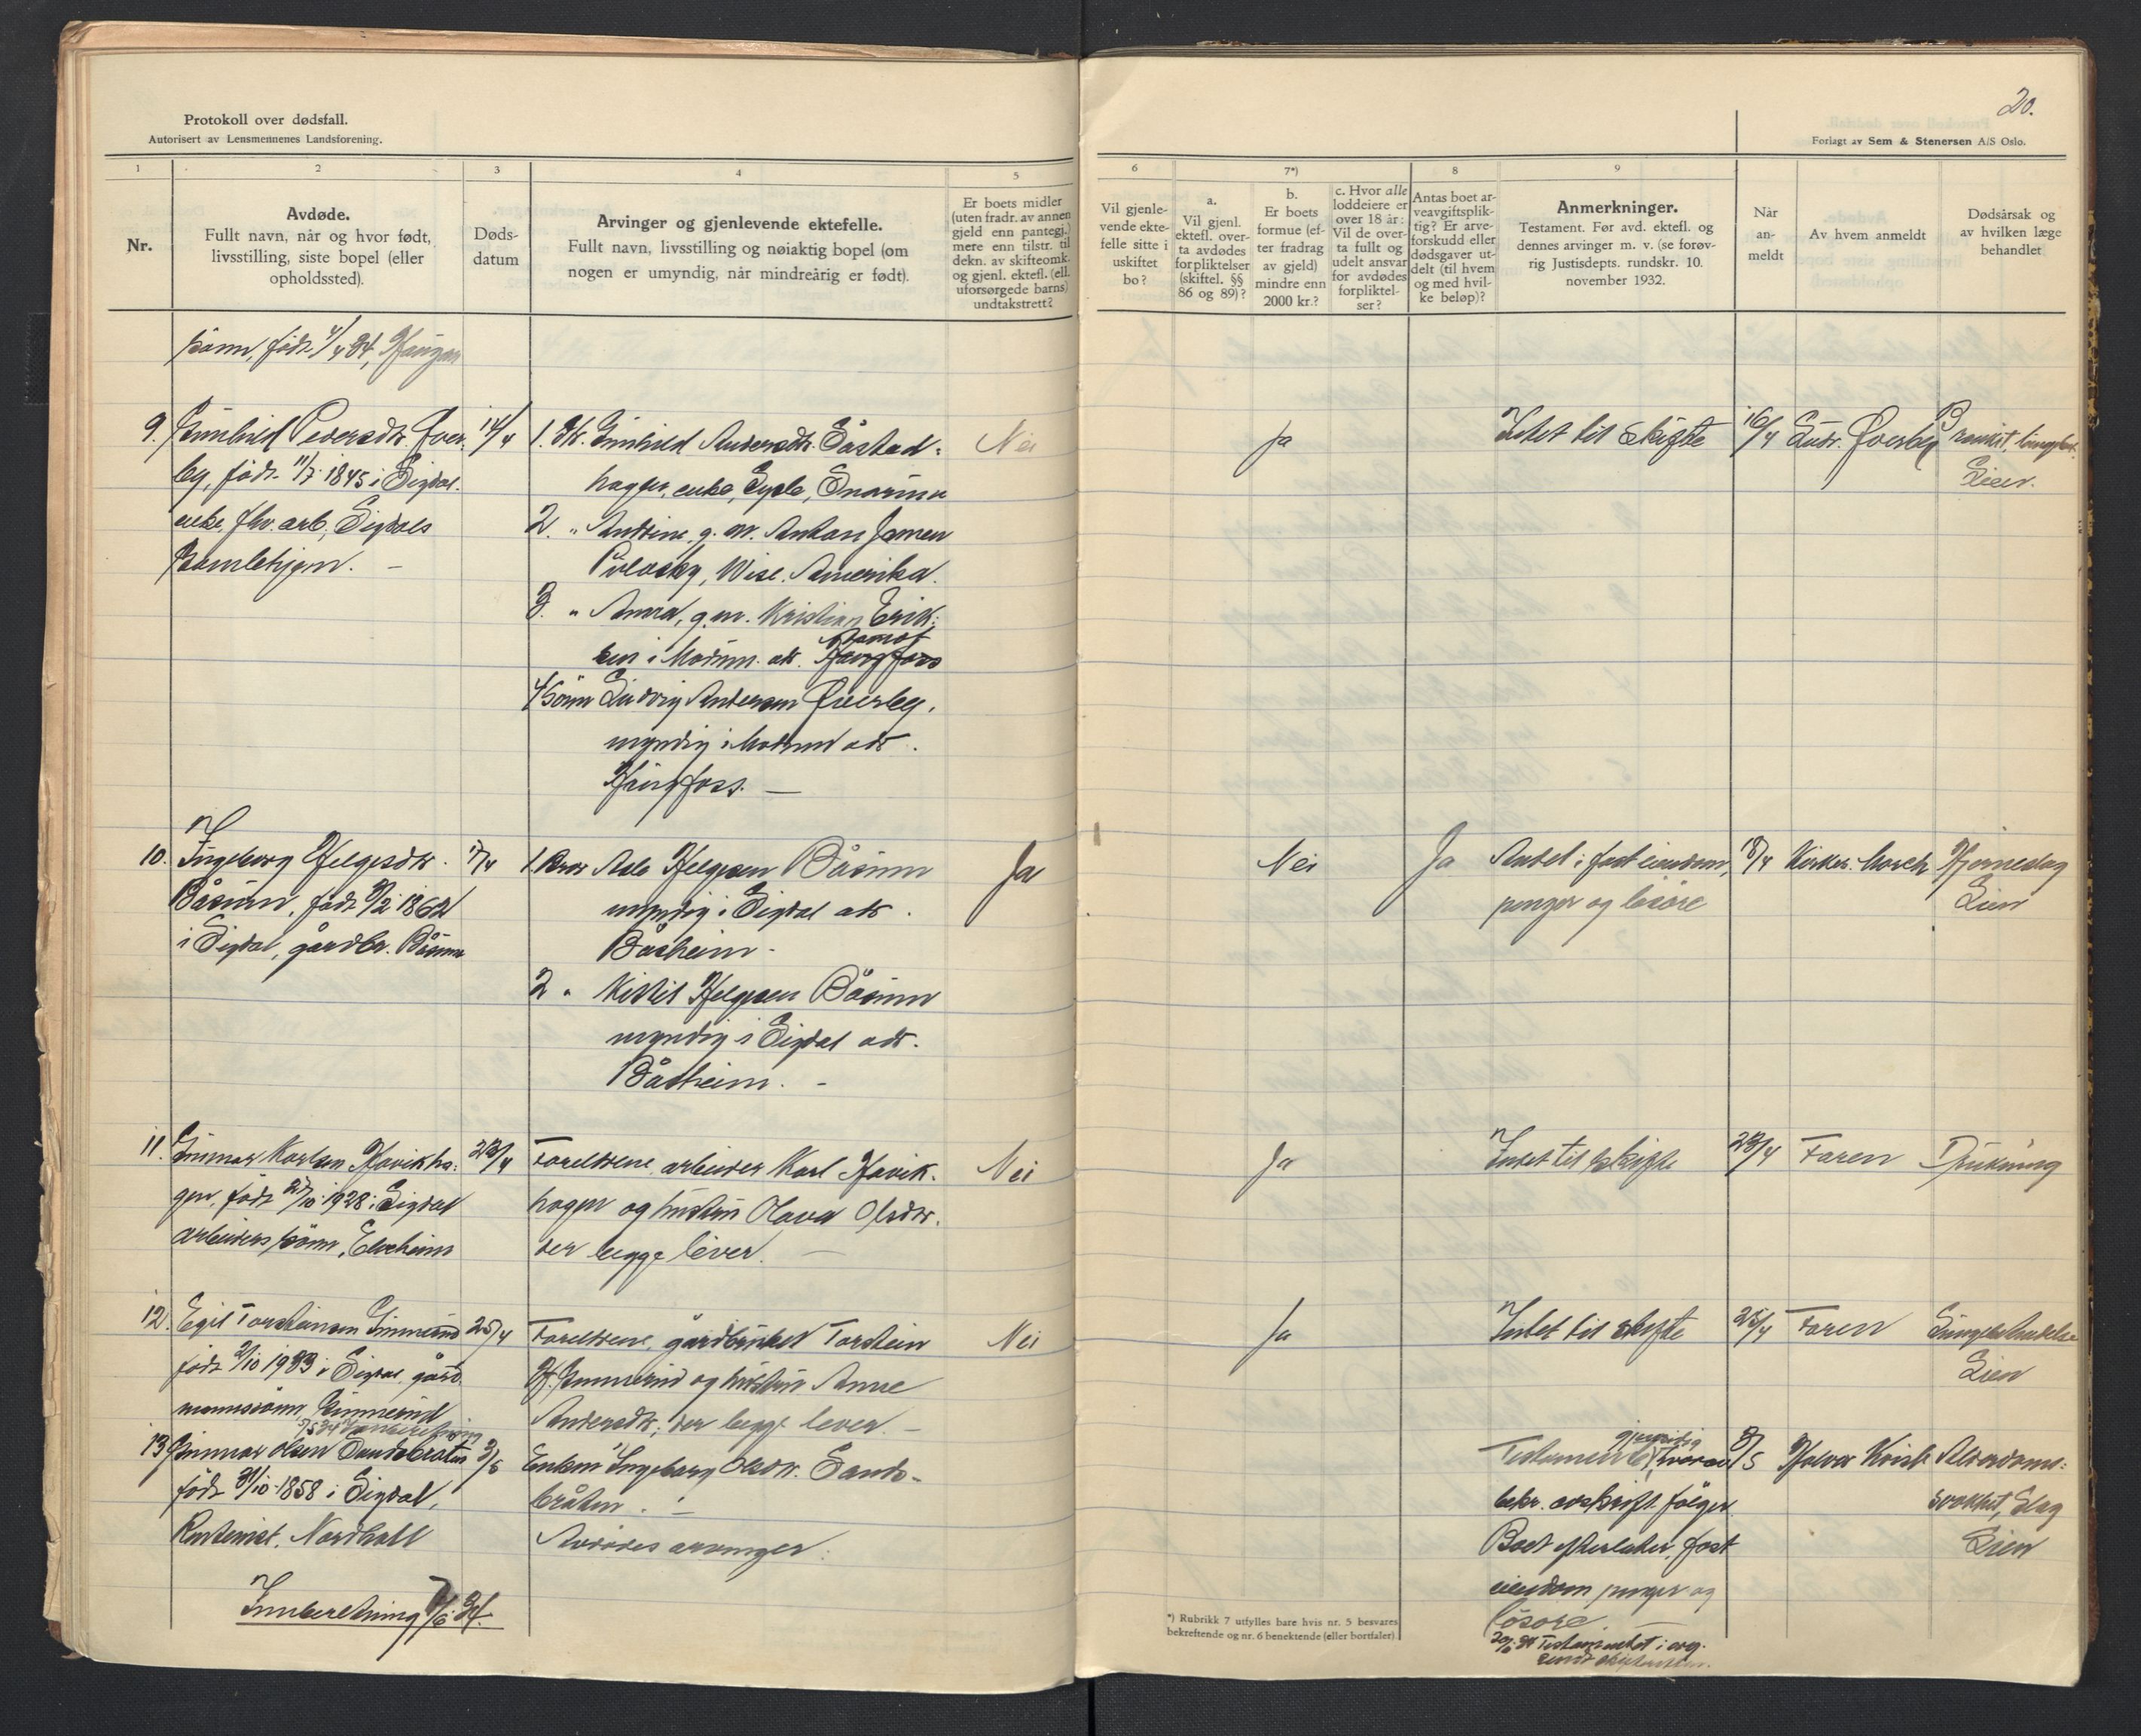 Protokoll over dødsfall.
Autorisert av Lensmennenes Landsforening.
20.
Forlagt av Sem & Stenersen A/S Oslo.
1
2
3
4
5
6
7*)
8
9
Nr.
Avdøde.
Fullt navn, når og hvor født,
livsstilling, siste bopel (eller
opholdssted).
Døds-
datum
Arvinger og gjenlevende ektefelle.
Fullt navn, livsstilling og nøiaktig bopel (om
nogen er umyndig, når mindreårig er født).
Er boets midler
(uten fradr. av annen
gjeld enn pantegj.)
mere enn tilstr. til
dekn. av skifteomk.
og gjenl. ektefl. (ell.
uforsørgede barns)
undtakstrett?
Vil gjenle-
vende ekte-
felle sitte i
uskiftet
bo?
a.
Vil gjenl.
ektefl. over-
ta avdødes
forpliktelser
(skiftel. §§
86 og 89)?
b.
Er boets
formue (ef-
ter fradrag
av gjeld)
mindre enn
2000 kr.?
c. Hvor alle
loddeiere er
over 18 år:
Vil de over-
ta fullt og
udelt ansvar
for avdødes
forpliktel-
ser?
Antas boet ar-
veavgiftsplik-
tig? Er arve-
forskudd eller
dødsgaver ut-
delt (til hvem
og med hvil-
ke beløp)?
Anmerkninger.
Testament. Før avd. ektefl. og
dennes arvinger m. v. (se forøv-
rig Justisdepts. rundskr. 10.
november 1932.
Når
an-
meldt
Av hvem anmeldt
Dødsårsak og
av hvilken læge
behandlet
sønn, født 4/4 34, Haugan
9. Gunhild Pedersdtr. Øver-
by, født 11/7 1845 i Sigdal.
enke, fhv. arb., Sigdals
Gamlehjem. –
14/4
1. Dtr. Gunhild Andersdtr.
hagen, enke, Eggedal, Snarum
2. " Andrine, g. m. Anton Jensen
Wisc. Amerika.
3. " Anna, g.m. Kristian Erik-
sen i Modum. adr.
4 Sønn Ludvig Andersen Øverby,
myndig i Modum adr.
Haugfoss. –
Nei
Ja
Intet til skifte
16/4 Ludv. Øverby
Bronkit, lungebet.
Lien.
10. Ingeborg Helgesdtr.
Båsum, født 9/2 1862
i Sigdal, gårdbr. Båsum
17/4
1. Bror Asle Helgesen Båsum
myndig i Sigdal adr.
Båsheim –
2 " Kittil Helgesen Båsum
myndig i Sigdal adr.
Båsheim. –
Ja
Nei
Ja
Andel i fast eiendom,
penger og løsøre
18/4 Kirkes. Morch
Hjerneslag
Lien
11. Gunnar Karlsen Havikha-
gen, født 27/10 1928 i Sigdal
arbeiders sønn, Elveheim
23/4
Foreldrene arbeider Karl Havik-
hagen og hustru Olava Olsdtr.
der begge lever. –
Nei
Ja
Intet til skifte
23/4 Faren
Drukning
12. Egil Torsteinsen Gunnerud
født 2/10 1933 i Sigdal gård-
mannssønn, Gunnerud
25/4
Foreldrene, gårdbruker Torstein
H. Gunnerud og hustru Anne
Andersdtr., der begge lever. –
Nei
Ja
Intet til skifte
25/4 Faren
Lungebetendelse
Lien
13 Gunnar Olsen Sandsbråten
født 31/10 1858 i Sigdal,
Rentenist, Nordhall
3/5
Enken Ingeborg Olsdr. Sands-
bråten. –
Avdødes arvinger:
Testamente gjensidig hvorav
bekr. avskrift følger.
Boet efterlater fast
eiendom penger og
løsøre. –
20/6 34 Testamentet i org.
sendt skifteretten.
3/5 Halvor Kvisle
Alderdoms-
svakhet, Slag
Lien
Innberetning 7/6 34.
*) Rubrikk 7 utfylles bare hvis nr. 5 besvares
bekreftende og nr. 6 benektende (eller bortfaler).